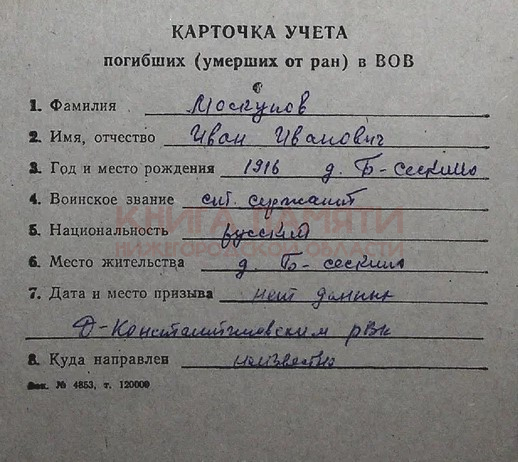 КАРТОЧКА УЧЕТА
погибших (умерших от ран) в ВОВ
1. Фамилия Москунов
2. Имя, отчество Иван Иванович
3. Год и место рождения 1916 д. Б-сескино
4. Воинское звание снт. сержант
КНИГА ПАМЯТИ
5. Национальность русский
НИЖЕГОРОДСКОЙ ОБЛАСТИ
6. Место жительства д. Б-сескино
7. Дата и место призыва нет данных
Д-Константиновским рвк
8. Куда направлен неизвестно
Зак. № 4853, т. 120000